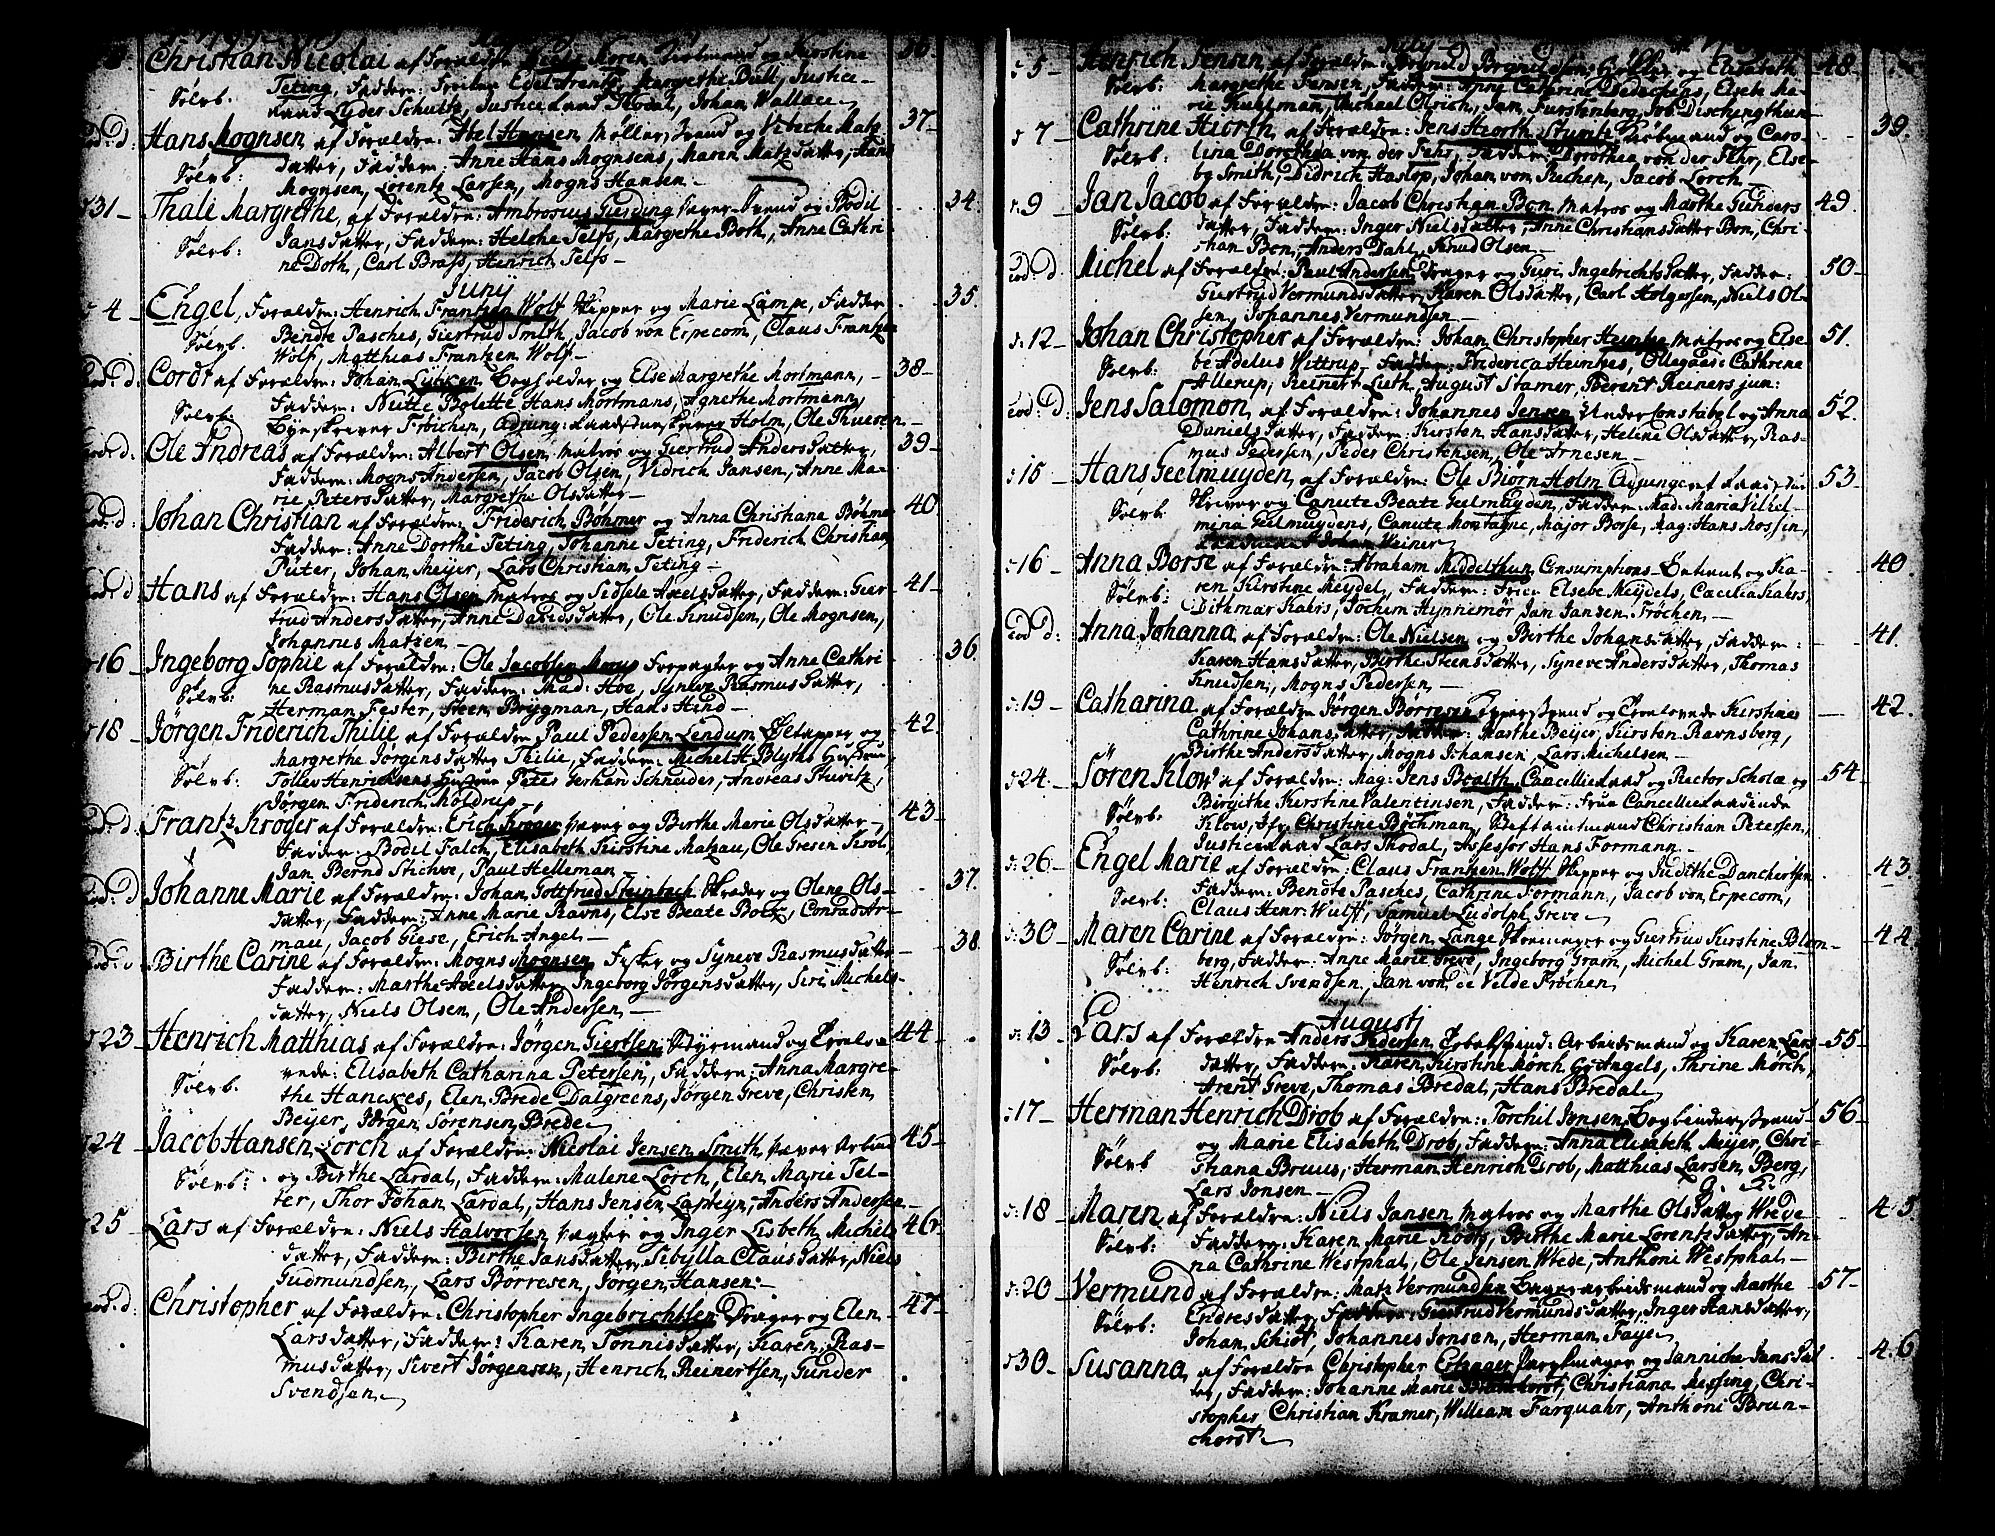 Christian Nicolai af Forældre Niels Koren og Kirstine 36
Teting, Faddere: Frøiken Edel Arentz, Margrethe Bull, Justice-
Sølvb. raad Lyder Schultz, Justiceraad Thodal, Johan Wallace
eod: d: Hans Mognsen af Forældre: Abel Hansen Møller svend og Vibeche Matz 37
datter, Faddere: Anne Hans Mognsens, Maren Matzdatter, Hans
Sølvb: Mognsen, Lorentz Larsen, Mogns Hansen
31 Thale Margrethe, af Forældre: Ambrosius Giersing svend og Bodil 34.
Sølvb: Jansdatter, Faddere: Helche Jelfs, Margrethe Both, Anne Cathri-
ne Doth, Carl Brass, Henrich Jelfs
Junij
4 Engel, Forældre: Henrich Frantzen Wolf Skipper og Marie Lampe, Faddere 35.
Sølvb. Bendte Pasches, Giertrud Smith, Jacob von Erpecom, Claus Frantzen
Wolf, Matthias Frantzen Wolf
eod. d. Cordt af Forældre: Johan Lübken Bogholder og Else Margrethe Mortmann, 38
Sølvb. Faddere: Nille Bolette Hans Mortmans, Agnethe Mortmann,
Byeskriver Frøichen, Adjung: Laadsdunskriver Holm, Ole Thuesen
eod. d. Ole Andreas af Forældre: Albert Olsen matros og Giertrud Andersdatter, 39
Faddere: Mogns Andersen, Jacob Olsen, Vidrich Jansen, Anne Ma-
rie Petersdatter, Margrethe Olsdatter
eod. d: Johan Christian af Forældre: Friderich Bøhmer og Anna Christiana Bøhmer 40
Faddere: Anne Dorthe Teting, Johanne Teting, Friderich Christian
Püter, Johan Meyer, Lars Christian Teting
eod. d Hans af Forældre: Hans Olsen matros og Sidsele Axelsdatter, Faddere: Gier 41
trud Andersdatter, Anne Davidsdatter, Ole Knudsen, Ole Mognsen,
Johannes Matzen
16 Ingeborg Sophie af Forældre: Ole Jacobsen Forpagter og Anne Cathri 36.
Sølvb: ne Rasmusdatter, Faddere: Mad: Hoe, Syneve Rasmusdatter,
Herman Fester, Steen Brygman, Hans Hind
18 Jørgen Friderich Thilie af Forældre Paul Pedersen Lendum Øltapper og 42
Margrethe Jørgensdatter Thilie, Faddere: Michel H: Blyths Hustrue
Sølvb: Tollev Henrichsens Hustrue Peter Gerhan Schneider, Andreas Sturitz,
Jørgen Friderich Moldrup
eod. d. Frantz Krøger af Forældre: Erich Krøger og Birthe Marie Olsdatter 43
Faddere: Bodil Falch, Elisabeth Kirstine Matzau, Ole Gresen Krol,
Jan Bernd Stichve, Paul Helleman
eod. d Johanne Marie af Forældre: Johan Gottfried Steinbach Skræder og Olene Ols- 37.
datter, Faddere: Anne Marie Ravns, Else Beate Bock, Conrad Ar-
mau, Jacob Giese, Erich Angel
eod: d Birthe Carine af Forældre: Mogns Mognsen Fisker og Syneve Rasmusdatter 38
Faddere: Marthe Axelsdatter, Ingeborg Jørgensdatter, Siri Michels-
datter, Niels Olsen, Ole Andersen
23 Henrich Matthias af Forældre: Jørgen Giertsen Styrmand og Trolo- 44
vede: Elisabeth Catharina Petersen, Faddere: Anna Margre-
Sølvb. the Hanckes, Elen Brede Dalgreens, Jørgen Greve, Christen
Beyer, Jørgen Sørensen Brede
24 Jacob Hansen Lorch af Forældre: Nicolai Jensen Smith og 45
Sølvb: og Birthe Lardal, Faddere: Malene Lorch, Elen Marie Tel-
ter, Thor Johan Lardal, Hans Jensen Lasteyn, Anders Andersen
25 Lars af Forældre: Niels Halvorsen og Inger Lisbeth Michels 46
datter, Faddere: Birthe Jansdatter, Sibylla Clausdatter, Niels
Gudmundsen, Lars Børresen, Jørgen Hansen
eod. d: Christopher af Forældre: Christopher Ingebrichtsen Drager og Elen 47
Larsdatter, Faddere: Karen Tonnisdatter, Karen Ras-
musdatter, Sivert Jørgensen, Henrich Reinertsen, Gunder
Svendsen
5 Henrich Jensen af Forældre: og Elisabeth 48
Sølvb: Margrethe Jensen, Faddere: Anne Cathrine Dedechens, Elsebe Ma-
rie Kuhlman, Michael Olrich, Jan Furstenberg, Job Dischengthun
7 Cathrine Hiorth af Forældre: Jens Hiorth Stuntz Kiøbmand og Caro- 39.
Sølvb: lina Dorothea von der Fehr, Faddere: Dorothea von der Fehr, Else-
be Smith, Didrich Haslop, Johan von Rechen, Jacob Lorch
9 Jan Jacob af Forældre: Jacob Christian Ben matros og Marthe Gunders 49.
Sølvb: datter, Faddere: Inger Nielsdatter, Anne Christiansdatter Ben, Chri-
stian Ben, Anders Dahl, Knud Olsen
eod. d. Michel af Forældre: Paul Andersen Drager og Guri Ingebrichtsdatter, Faddere: 50
Giertrud Vermundsdatter, Karen Olsdatter, Carl Holgersen, Niels Ol-
sen, Johannes Vermundsen
12 Johan Christopher af Forældre: Johan Christopher Heintze matros og Else 51.
Sølvb: be Adelus Wittrup, Faddere: Friderica Heintzes, Ollegaes Cathrine
Allerup, Reinert Lieth, August Stamer, Berent Reiners jun:
eod: d: Jens Salomon af Forældre: Johannes Jensen Underconstabel og Anna 52
Danielsdatter, Faddere: Kirsten Hansdatter, Helene Olsdatter, Ras-
mus Pedersen, Peder Christensen, Ole Arnesen
15 Hans Geelmuyden af Forældre: Ole Biørn Holm Adjungeret Laadsdun 53
Sølvb. skriver og Canute Beate Geelmuyden, Faddere: Mad. Maria Vilhel-
mina Geelmuydens, Canute Montagne, Major Borse, Mag: Hans Mossin,
Johan Weiner
16 Anna Borse af Forældre: Abraham Middelthun Consumptions-Betient og Ka- 40.
Sølvb: ren Kirstine Meydel, Faddere: Frue Elsebe Meydels, Cæcilia Kahrs,
Dithmar Kahrs, Jochum Hynnemør, Jan Jansen Frøchen
eod d: Anna Johanna af Forældre: Ole Nielsen og Birthe Johansdatter, Faddere: 41.
Karen Hansdatter, Birthe Steensdatter, Syneve Andersdatter, Thomas
Knudsen, Mogns Pedersen
19 Catharina af Forældre Jørgen Børresen svend og Trolovede Kirstine 42.
Cathrine Johansdatter, Faddere: Marthe Beyer, Kirsten Ravnsberg,
Birthe Andersdatter, Mogns Johansen, Lars Michelsen
24. Søren Klow af Forældre: Mag: Jens Boalth Cancellieraad og Rector Scholæ og 54
Sølvb: Birgithe Kirstine Valentinsen, Faddere: Frue Cancellieraadinde
Klow, Jfr Christine Bøchman, Stiftamtmand Christian Petersen,
Justiceraad Lars Thodal, Assessor Hans Formann
26 Engel Marie af Forældre: Claus Frantzen Wolff Skipper og Judithe Danchertsen 43
Sølvb: Faddere: Bendte Pasches, Cathrine Formann, Jacob von Erpecom,
Claus Henr: Wulff, Samuel Ludolph Greve
30 Maren Carine af Forældre: Jørgen Lange og Giertrud Kirstine Blom- 44
Sølvb: berg, Faddere: Anne Marie Greve, Ingeborg Gram, Michel Gram, Jan
Henrich Svendsen, Jan von de Velde Frøchen
Augustj
13 Lars af Forældre Anders Pedersen Arbeidsmand og Karen Lars 55
Sølvb: datter, Faddere: Karen Kirstine Mørch Angels, Thrine Mørch,
Arent Greve, Thomas Bredal, Hans Bredal
17 Herman Henrich Drob af Forældre: Torchil Jonsen Bogbinder svend 56
Sølvb og Marie Elisabeth Drob, Faddere: Anna Elisabeth Meyer, Chri-
stiana Bruus, Herman Henrich Drob, Matthias Larsen Berg,
Lars Jonsen
18 Maren af Forældre: Niels Jansen matros og Marthe Olsdatter Wrede 45.
Sølvb: Faddere: Karen Marie Koot, Birthe Marie Lorentzdatter, An-
na Cathrine Westphal, Ole Jensen Wrede, Anthoni Westphal
20 Vermund af Forældre: Matz Vermundsen arbeidsmand og Marthe 57
Sølvb: Endresdatter, Faddere: Giertrud Vermundsdatter, Inger Hansdatter,
Johan Schiøt, Johannes Jonsen, Herman Faye
30 Susanna af Forældre Christopher og Jannicke Jansdat 46
ter, Faddere: Johanne Marie Brunchorst, Christiana Messing, Chri-
stopher Christian Kramer, William Farquahr, Anthoni Brun-
chorst